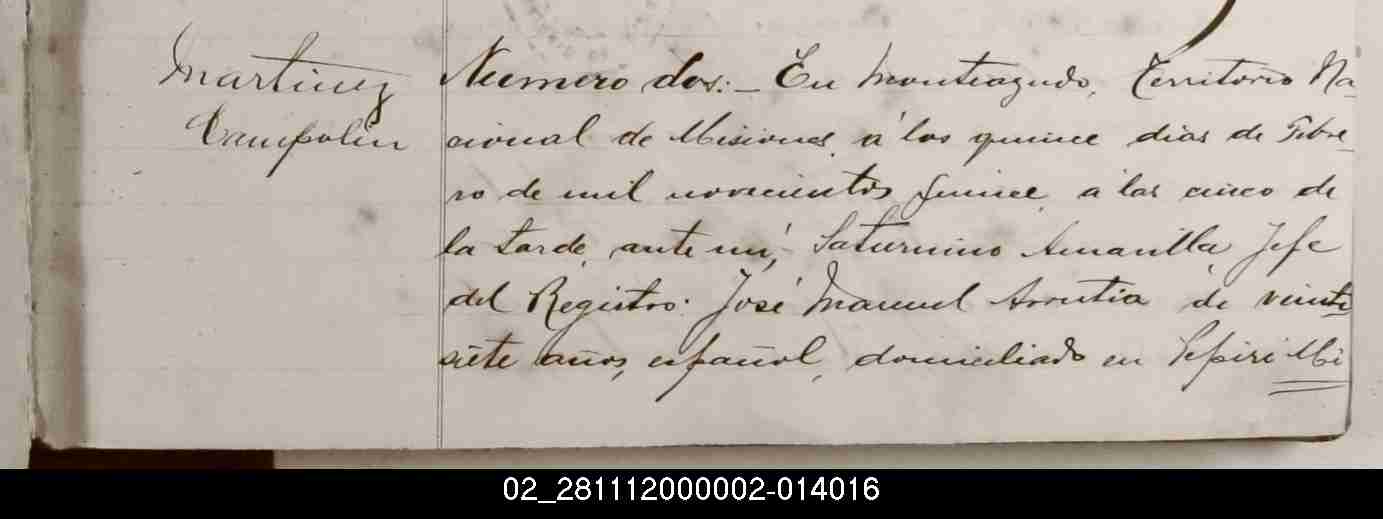 Martinez
Campolin
Numero dos:_ En Monteagudo, Territorio Na-
cional de Misiones, á los quince dias de Febre-
ro de mil novecientos quince, a las cinco de
la tarde, ante mí, Saturnino Amarilla, Jefe
del Registro: José Manuel Arrutia, de veinti
siete años, español, domiciliado en Pepiri Mi
02_281112000002-014016